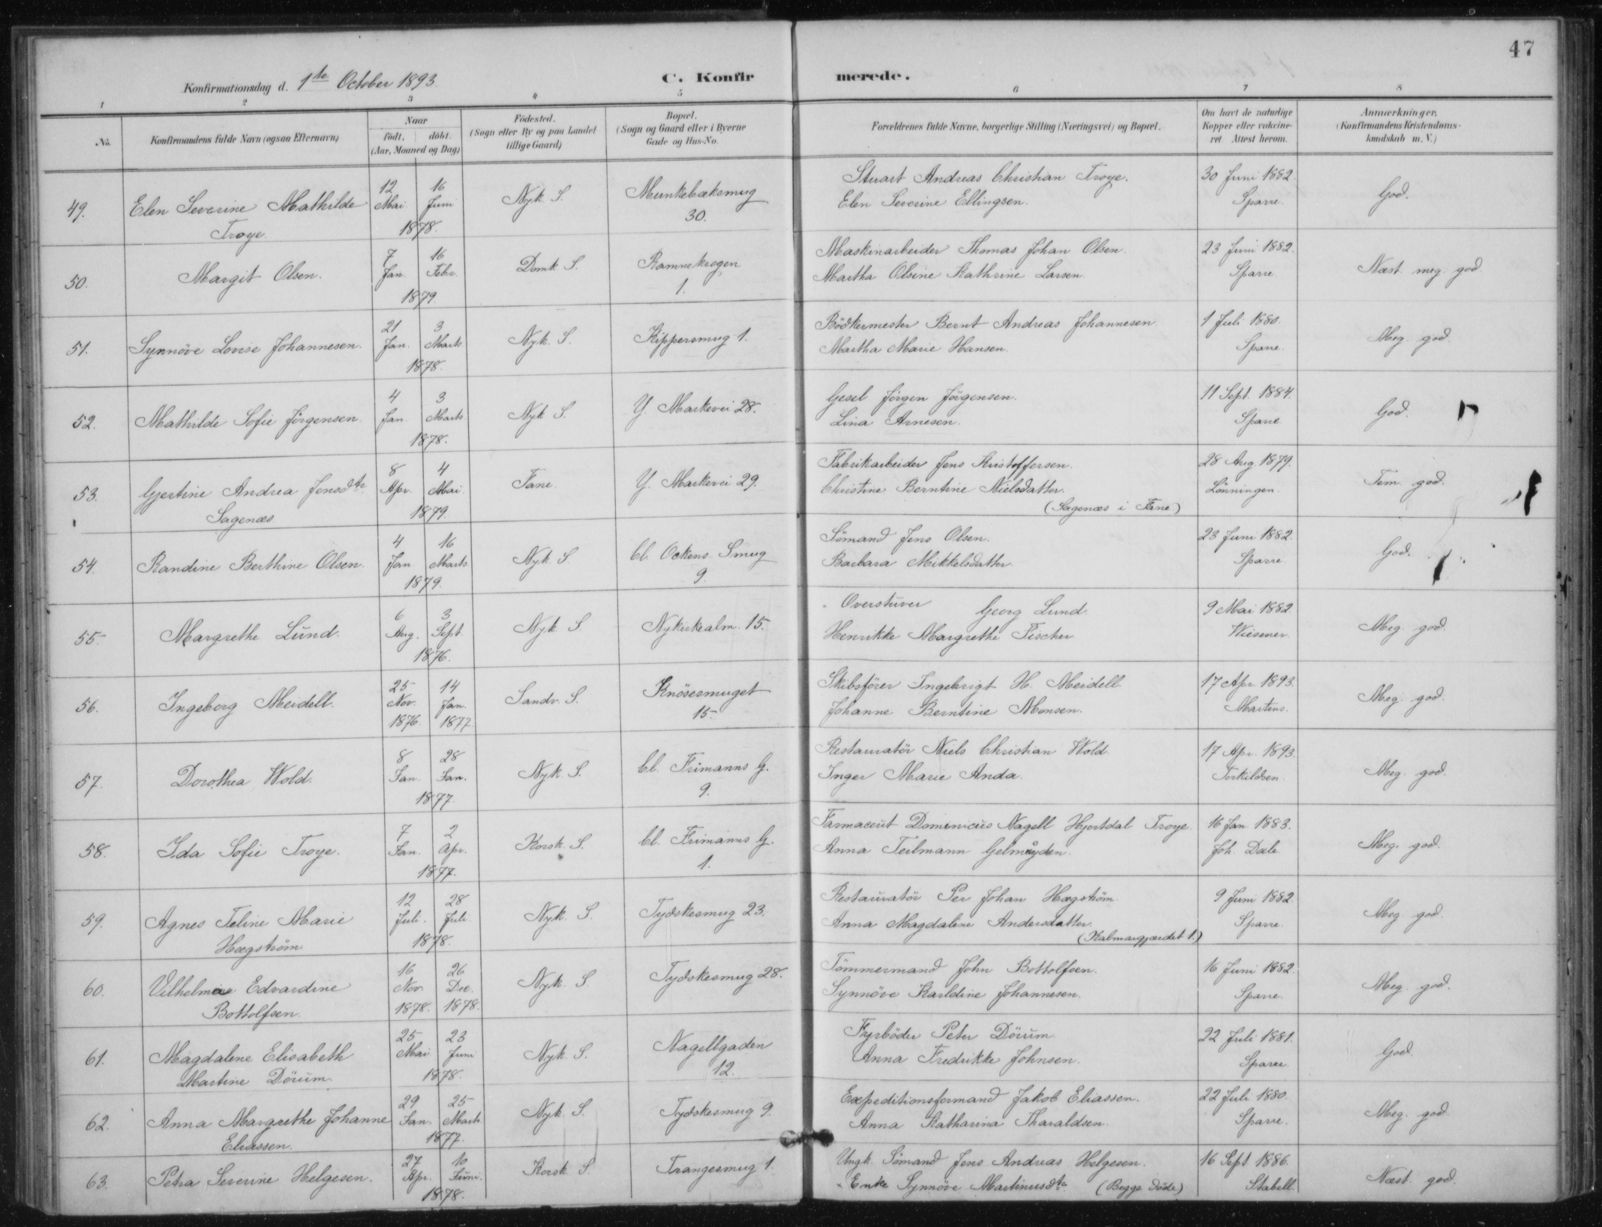 47
Konfirmationsdag d. 1ste October 1893
C. Konfirmerede.
1 2 3 4 5 6 7 8
No. Konfirmandens fulde Navn (ogsaa Efternavn) Naar født, døbt. (Aar, Maaned og Dag) Fødested. (Sogn eller By og paa Landet tillige Gaard) Bopæl. (Sogn og Gaard eller i Byerne Gade og Hus-No. Forældrenes fulde Navne, borgerlige Stilling (Næringsvei) og Bopæl. Om havt de naturlige Kopper eller vaccineret Attest herom. Anmærkninger. (Konfirmandens Kristendomskundskab m. V.)
49. Elen Severine Mathilde Troye 12 Mai 16 Juni 1878. Nyk S. Munkebæksmug 30. Stuart Andreas Christian Troye. Elen Severine Ellingsen. 30 Juni 1882. Sparre. God.
50. Margit Olsen. 7 Jan. 16 Febr. 1879. Domk S. Ramnekrogen 1. Maskinarbeider Thomas Johan Olsen. Martha Olsine Kathrine Larsen. 23 Juni 1882. Sparre. Næst. meg. god
51. Synnöve Lovise Johannesen. 21 Jan. 3 Marts 1878. Nyk. S. Kippersmug 1. Bödkermester Bernt Andreas Johannesen Martha Marie Hansen. 1 Juli 1880. Sparre. Meg. god.
52. Mathilde Sofie Jörgensen. 4 Jan. 3 Marts 1878. Nyk S Y. Markevei 28. Gesel Jörgen Jörgensen. Lina Arnesen. 11 Sept. 1884. Sparre God.
53. Gjertine Andrea Jensdtr. Sagenæs 8 Apr. 4 Mai 1879. Fane. Y. Markevei 29. Fabrikarbeider Jens Kristoffersen. Christine Berntine Nielsdatter. (Sagenæs i Fane) 28 Aug. 1879. Lönningen. Tem. god.
54. Randine Berthine Olsen. 4 Jan 16 Marts 1879. Nyk S. Cl. Ockens Smug 9. Sömand Jens Olsen. Barbara Mikkelsdatter. 23 Juni 1882. Sparre. God.
55. Margrethe Lund. 6 Aug. 3 Sept 1876. Nyk S Nykirkealm. 15. Overstuver Georg Lund. Henrikke Margrethe Fischer 9 Mai 1882 Wiesener. Meg. god.
56. Ingeborg Meidell. 25 Nov. 1876 14 Jan. 1877 Sandv. S. Knösesmuget 15. Skibsförer Ingebrigt H. Meidell Johanne Berntine Monsen. 17 Apr. 1893. Martens. Meg. god.
57. Dorothea Wold. 8 Jan. 28 Jan. 1877 Nyk. S. Cl. Frimanns G. 9. Restauratör Niels Christian Wold. Inger Marie Anda. 17 Apr. 1893. Terkildsen. Meg. god.
58. Ida Sofie Troye. 7 Jan. 2 Apr. 1877. Korsk. S. Cl. Frimanns G. 1. Farmaceut Domenicus Nagell Hjortdal Troye Anna Teilmann Gelmuyden. 16 Jan 1883. Joh. Dale. Meg. god.
59. Agnes Teline Marie Hægström 12 Juli. 28 Juli 1878. Nyk. S. Tydskesmug 23. Restauratör Per Johan Hægström Anna Magdalene Andersdatter. (Kalmargjærdet 1.) 9 Juni 1882 Sparre. Meg. god.
60. Vilhelmine Edvardine Bottolfsen. 16 Nov. 1878. 26 Dec. 1878. Nyk S. Tydskesmug 28. Tömmermand John Bottolfsen. Synnöve Karldine Johannesen. 16 Juni 1882. Sparre. Meg. god.
61. Magdalene Elisabeth Martine Dörum. 25 Mai 23 Juni 1878. Nyk. S. Nagellgaden 12. Fyrböder Peter Dörum Anna Fredrikke Johnsen. 22 Juli 1881. Sparre God
62. Anna Margrethe Johanne Eliassen. 29 Jan. 25 Marts 1877. Nyk. S. Tydskesmug 9. Expeditionsformand Jakob Eliassen. Anna Katharina Tharaldsen. 22 Juli 1880. Sparre. Meg. god.
63. Petra Severine Helgesen. 27 Apr. 10 Juni. 1878. Korsk S Trangesmug 1. Ungk. Sömand Jens Andreas Helgesen. Enke Synnöve Martinusdtr. (Begge döde) 16 Sept. 1886. Stabell. Næst. god.